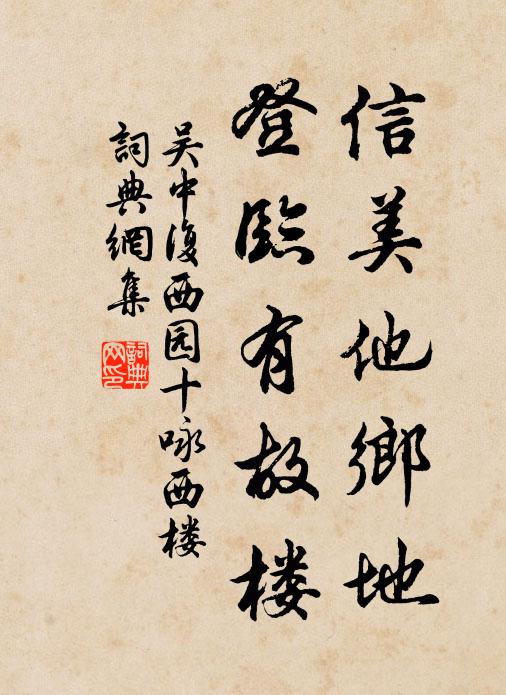 信美他鄉地
登臨有故楼
吴中復西园十咏西楼
詞典網集
詞典网印